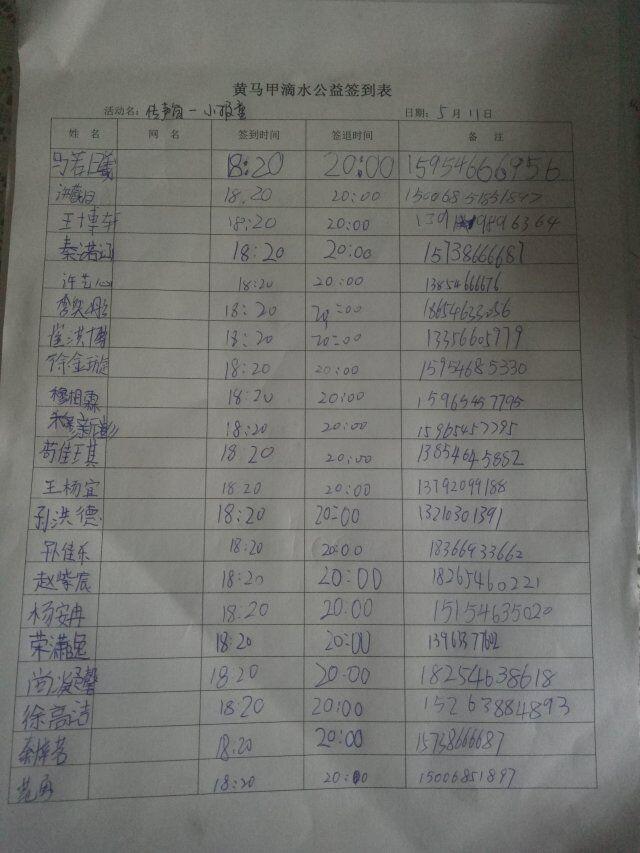 黄马甲滴水公益签到表
活动名：传声筒一小 日期：5月11日
姓 名 网 名 签到时间 签退时间 备 注
马若曦 18:20 20:00 15954666956
18.20 20:00
王博轩 18:20 20:00
秦诺 18:20 20:00 15738666687
许艺心 18:20 20:00 13854666676
18:20 20:00 18654633056
崔洪博 18:20 20:00 13356605979
徐金璇 18:20 20:00 15954685330
穆相霖 18:20 20:00 15965457795
穆新彭 18:20 20:00 15965457795
苟佳琪 18:20 20:00 13854645882
王杨宜 18:20 20:00 13792099188
孙洪德 18:20 20:00 13210301391
孙佳乐 18:20 20:00 18366933662
赵紫宸 18:20 20:00 18265460221
杨安冉 18:20 20:00 15154635020
荣潇逸 18:20 20:00
尚凝馨 18:20 20:00 18254638618
徐高洁 18:20 20:00 15263884893
秦梓若 18:20 20:00 15738666687
18:20 20:00 15006851897